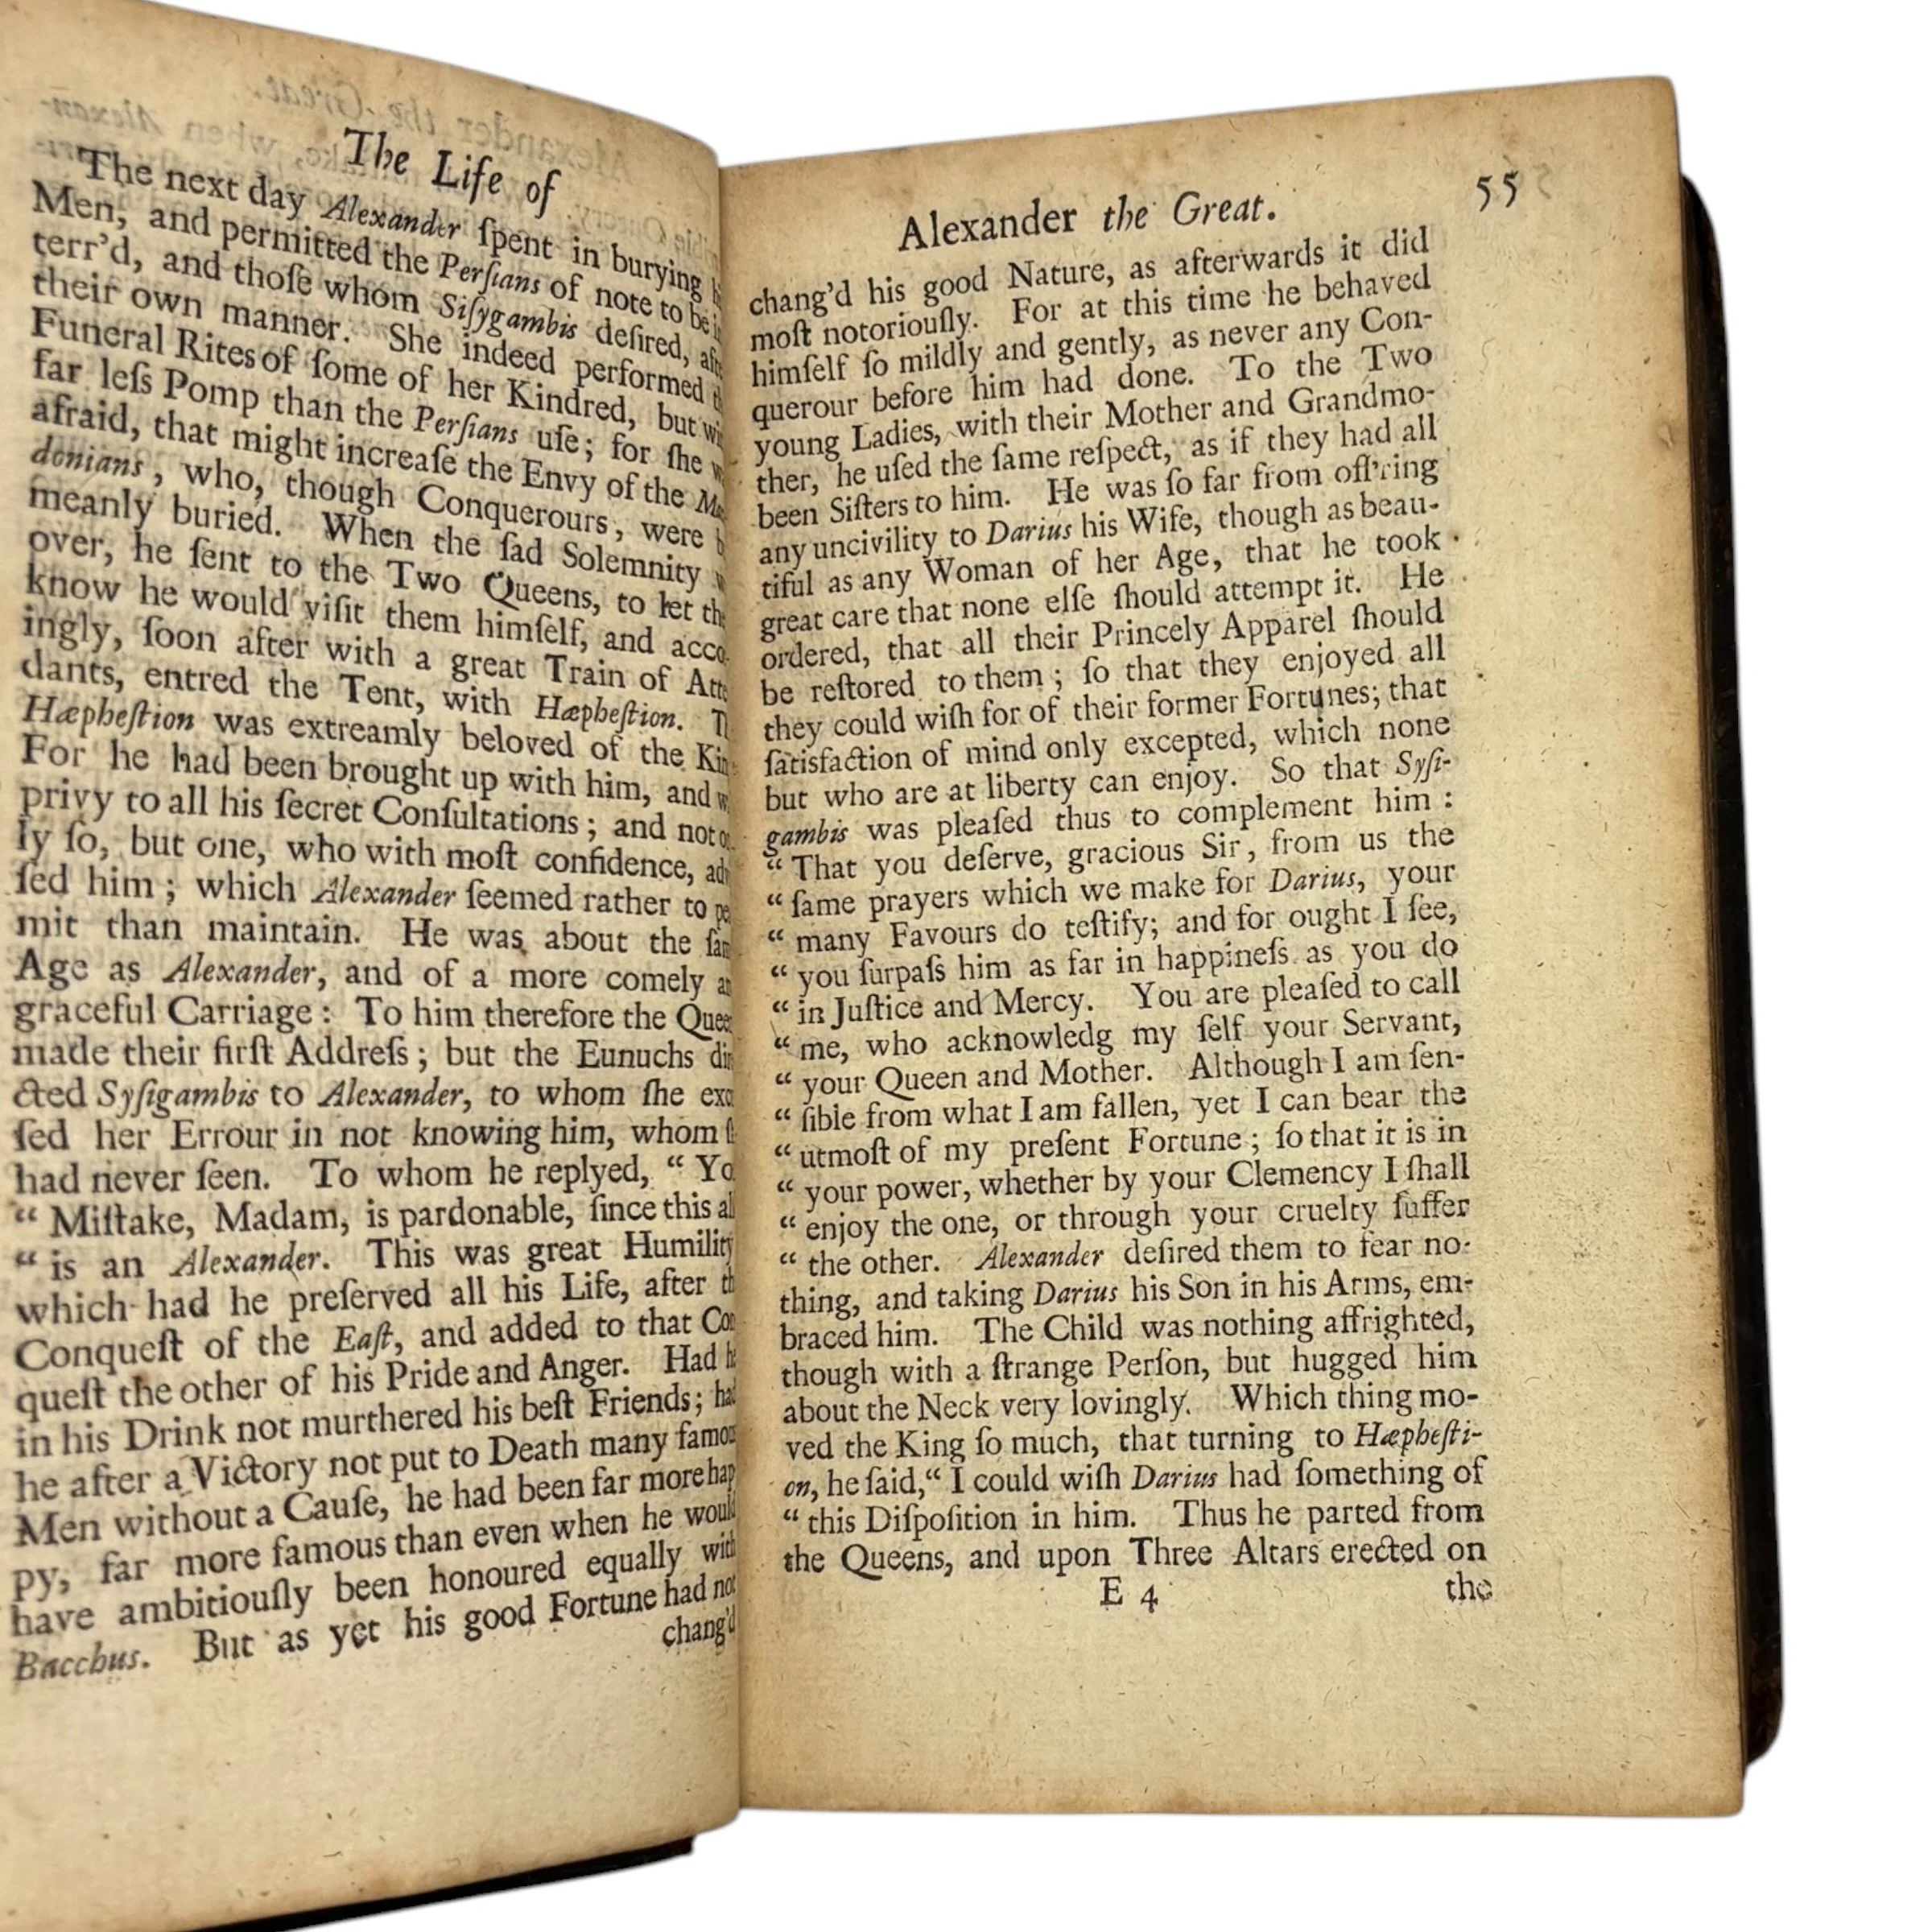 The Life of
The next day Alexander ſpent in burying
Men, and permitted the Perſians of note to be
terr'd, and thoſe whom Siſygambis deſired,
their own manner. She indeed performed
Funeral Rites of ſome of her Kindred, but
far leſs Pomp than the Perſians uſe; for ſhe
afraid, that might increaſe the Envy of the
donians, who, though Conquerours, were
meanly buried. When the ſad Solemnity
over, he ſent to the Two Queens, to let
know he would viſit them himſelf, and
ingly, ſoon after with a great Train of
dants, entred the Tent, with Hæpheſtion.
Hæpheſtion was extreamly beloved of the
For he had been brought up with him, and
privy to all his ſecret Conſultations; and not
ly ſo, but one, who with moſt confidence,
ſed him; which Alexander ſeemed rather to
mit than maintain. He was about the
Age as Alexander, and of a more comely
graceful Carriage: To him therefore the
made their firſt Addreſs; but the Eunuchs
cted Syſigambis to Alexander, to whom ſhe
ſed her Errour in not knowing him, whom
had never ſeen. To whom he replyed, “
“ Miſtake, Madam, is pardonable, ſince this
“ is an Alexander. This was great Humility
which had he preſerved all his Life, after
Conqueſt of the Eaſt, and added to that
queſt the other of his Pride and Anger. Had
in his Drink not murthered his beſt Friends;
he after a Victory not put to Death many
Men without a Cauſe, he had been far more hap
py, far more famous than even when he would
have ambitiouſly been honoured equally with
Bacchus. But as yet his good Fortune had not
chang'd
Alexander the Great. 55
chang'd his good Nature, as afterwards it did
moſt notoriouſly. For at this time he behaved
himſelf ſo mildly and gently, as never any Con-
querour before him had done. To the Two
young Ladies, with their Mother and Grandmo-
ther, he uſed the ſame reſpect, as if they had all
been Siſters to him. He was ſo far from off'ring
any uncivility to Darius his Wife, though as beau-
tiful as any Woman of her Age, that he took
great care that none elſe ſhould attempt it. He
ordered, that all their Princely Apparel ſhould
be reſtored to them; ſo that they enjoyed all
they could wiſh for of their former Fortunes; that
ſatisfaction of mind only excepted, which none
but who are at liberty can enjoy. So that Syſi-
gambis was pleaſed thus to complement him:
“ That you deſerve, gracious Sir, from us the
“ ſame prayers which we make for Darius, your
“ many Favours do teſtify; and for ought I ſee,
“ you ſurpaſs him as far in happineſs as you do
“ in Juſtice and Mercy. You are pleaſed to call
“ me, who acknowledg my ſelf your Servant,
“ your Queen and Mother. Although I am ſen-
“ ſible from what I am fallen, yet I can bear the
“ utmoſt of my preſent Fortune; ſo that it is in
“ your power, whether by your Clemency I ſhall
“ enjoy the one, or through your cruelty ſuffer
“ the other. Alexander deſired them to fear no-
thing, and taking Darius his Son in his Arms, em-
braced him. The Child was nothing affrighted,
though with a ſtrange Perſon, but hugged him
about the Neck very lovingly. Which thing mo-
ved the King ſo much, that turning to Hæpheſti-
on, he ſaid, “ I could wiſh Darius had ſomething of
“ this Diſpoſition in him. Thus he parted from
the Queens, and upon Three Altars erected on
E 4 the